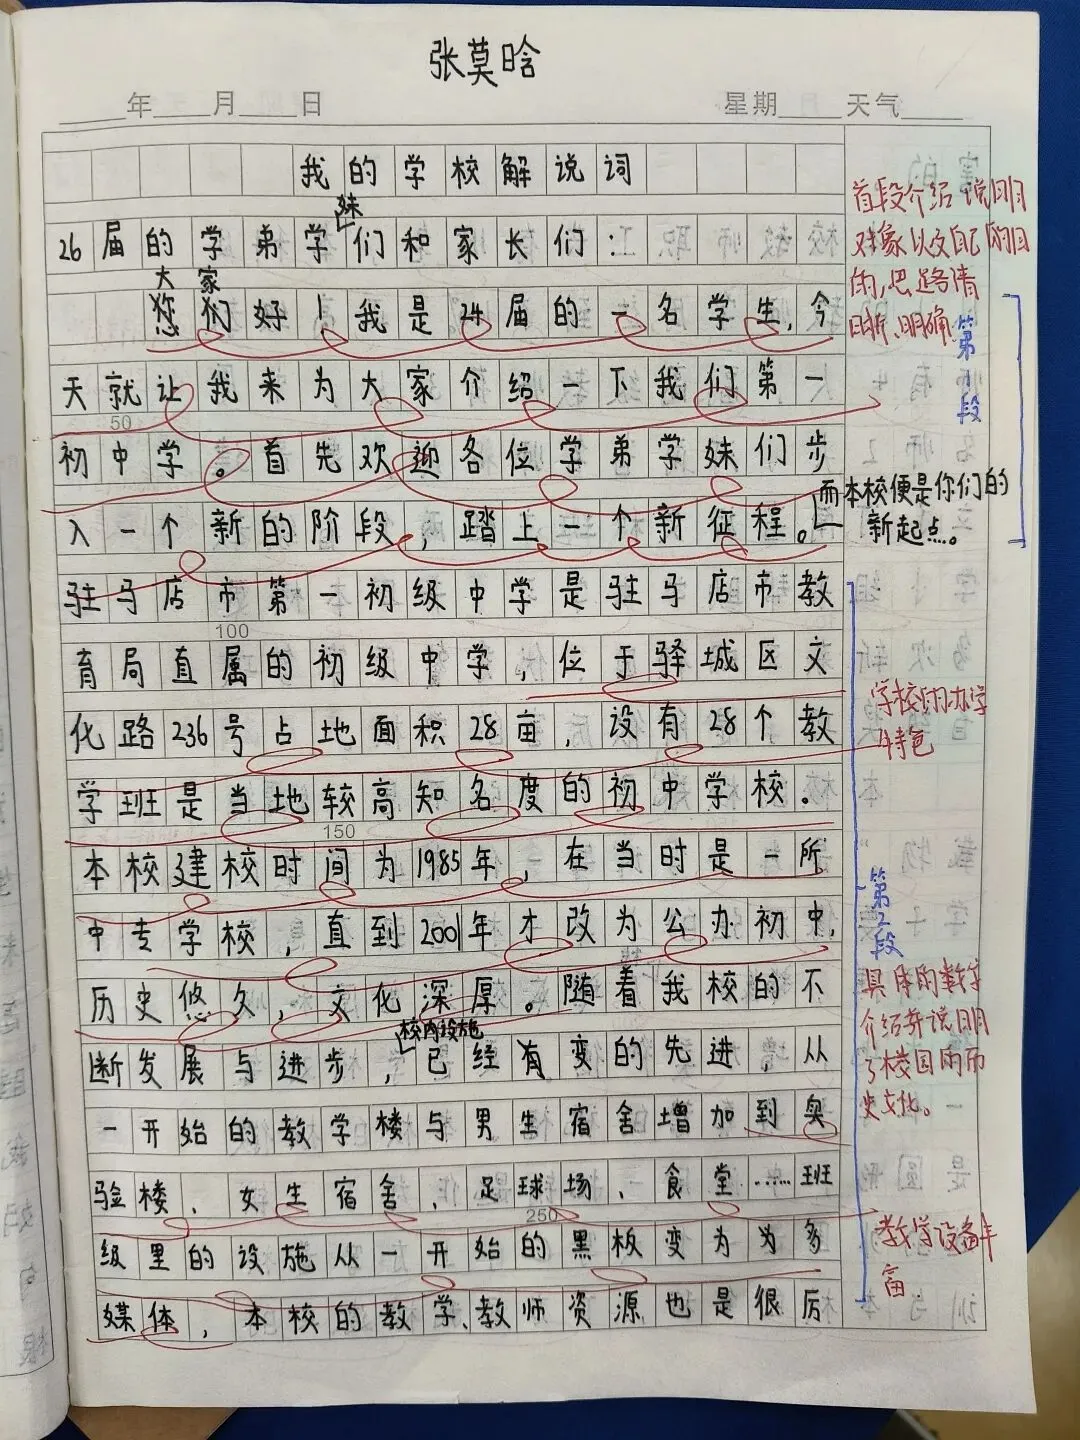 张莫晗
年 月 日 星期 天气
我的学校解说词
妹
26届的学弟学们和家长们：
大家
您们好！我是24届的一名学生,今
天就让我来为大家介绍一下我们第一
50
初中学。首先欢迎各位学弟学妹们步
入一个新的阶段,踏上一个新征程。
而本校便是你们的
新起点。
驻马店市第一初级中学是驻马店市教
100
育局直属的初级中学,位于驿城区文
化路236号占地面积28亩,设有28个教
学班是当地较高知名度的初中学校。
150
本校建校时间为1985年,在当时是一所
中专学校,直到2001年才改为公办初中,
历史悠久,文化深厚。随着我校的不
校内设施
断发展与进步,已经有变的先进,从
一开始的教学楼与男生宿舍增加到奥
验楼、女生宿舍、足球场、食堂……班
250
级里的设施从一开始的黑板变为为多
媒体,本校的教学、教师资源也是很厉
首段介绍说明
对象以及自己的目
的,思路清
晰、明确
第1段
学校的办学
特色
第2段
具体的数字
介绍并说明
了校园的历
史文化。
教学设备丰
富